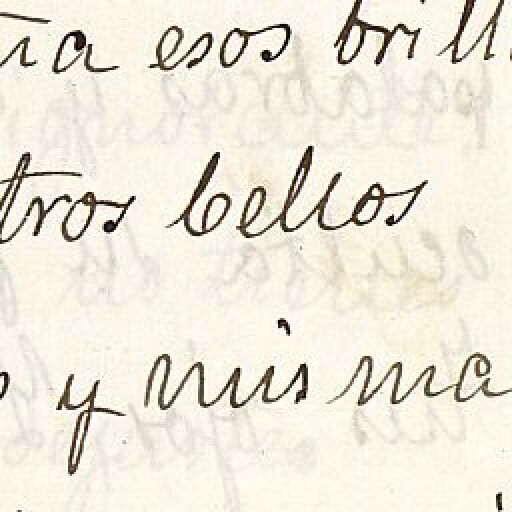 esos brill
tros bellos
y mis ma